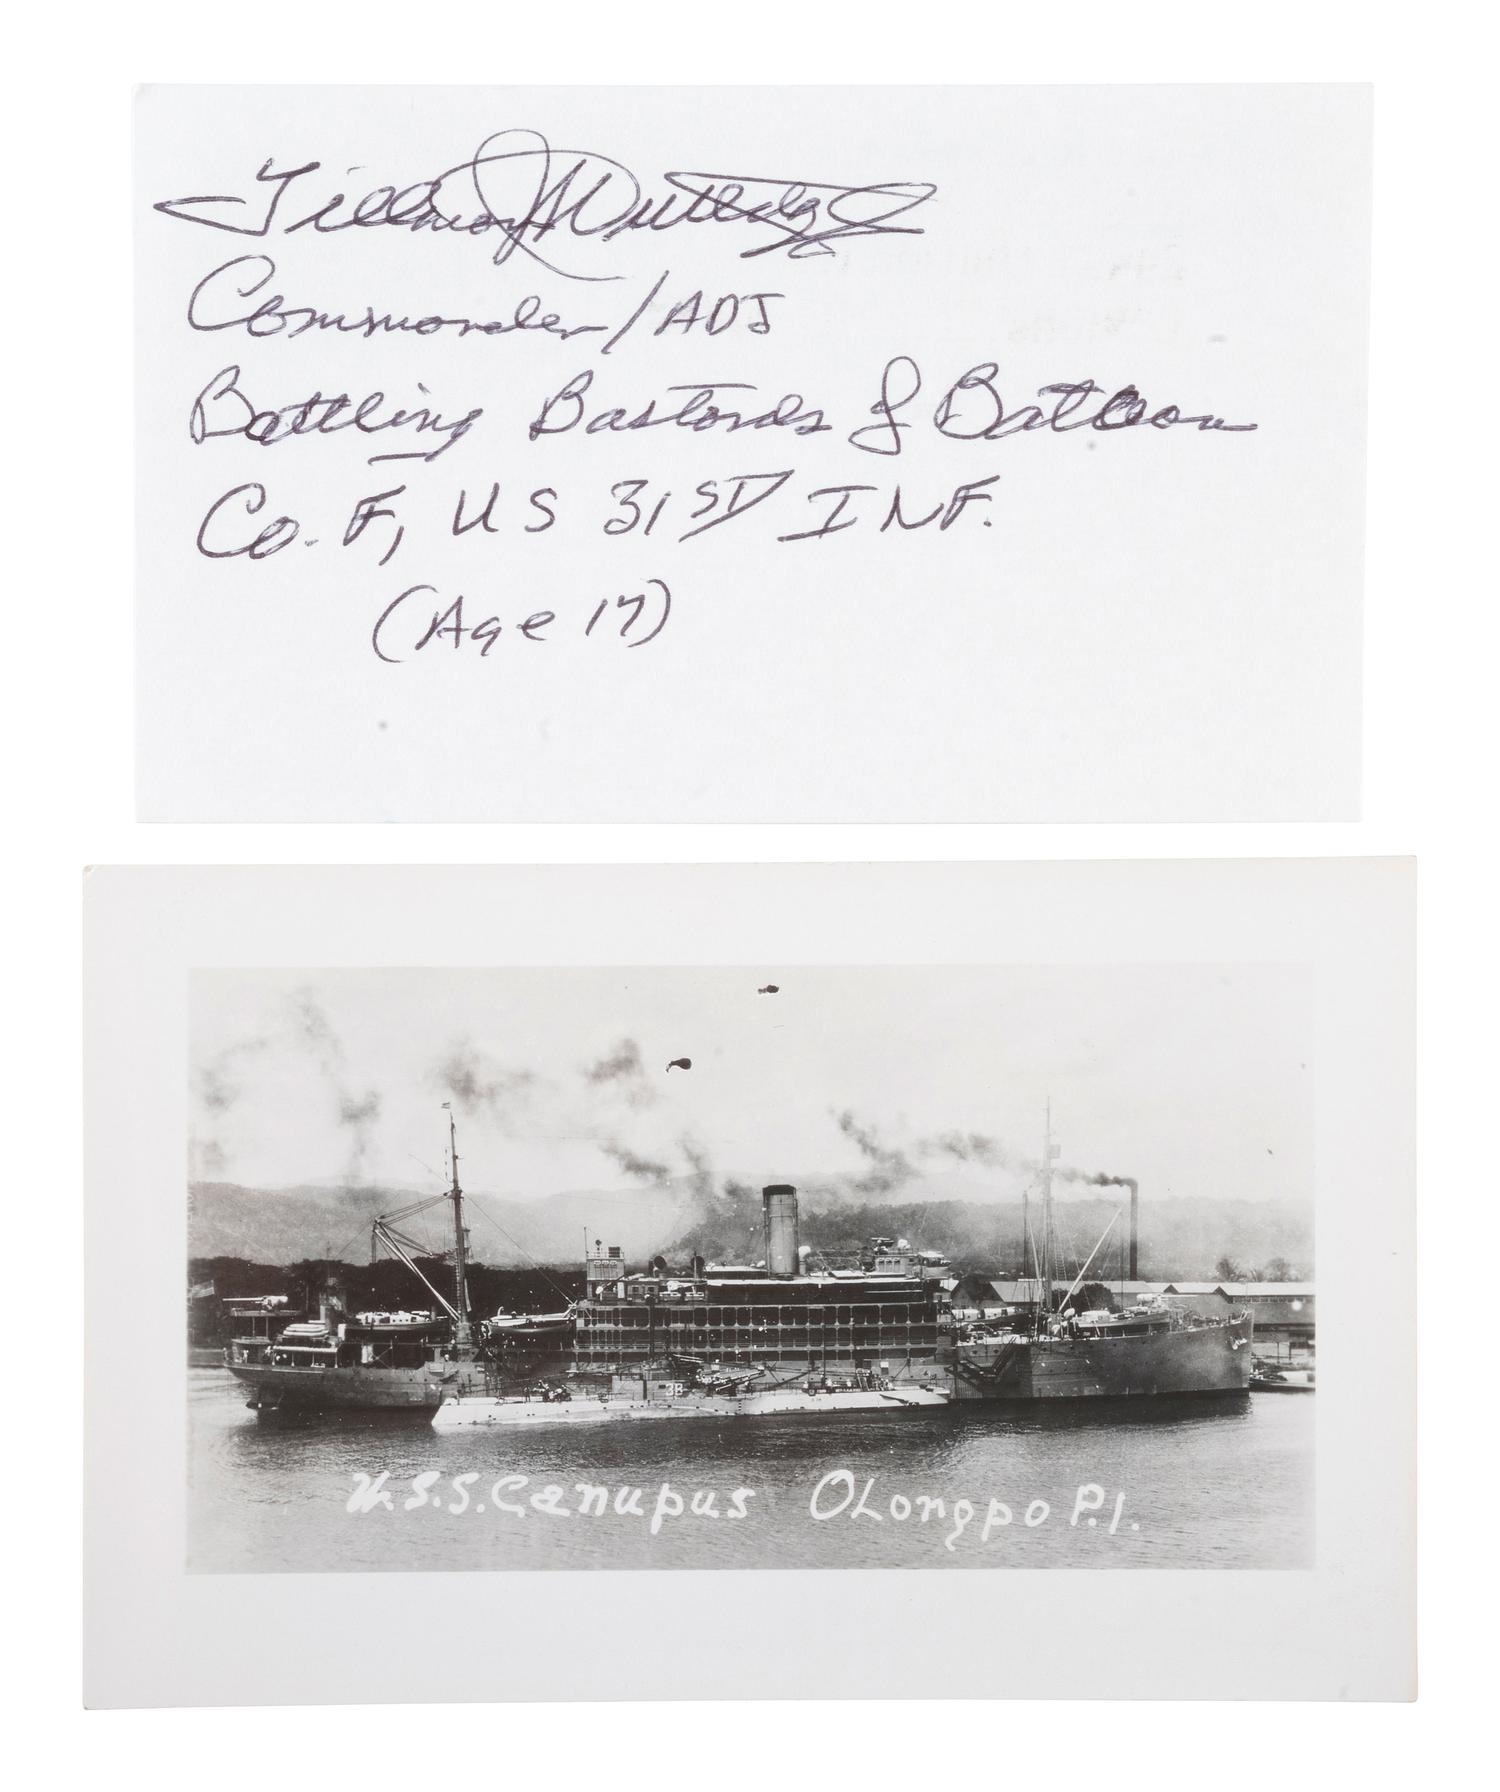 Tillman J Rutledge
Commander/ADJ
Battling Bastards of Bataan
Co. F, US 31ST INF.
(Age 17)
38
U.S.S. Canupus Olongpo P.I.